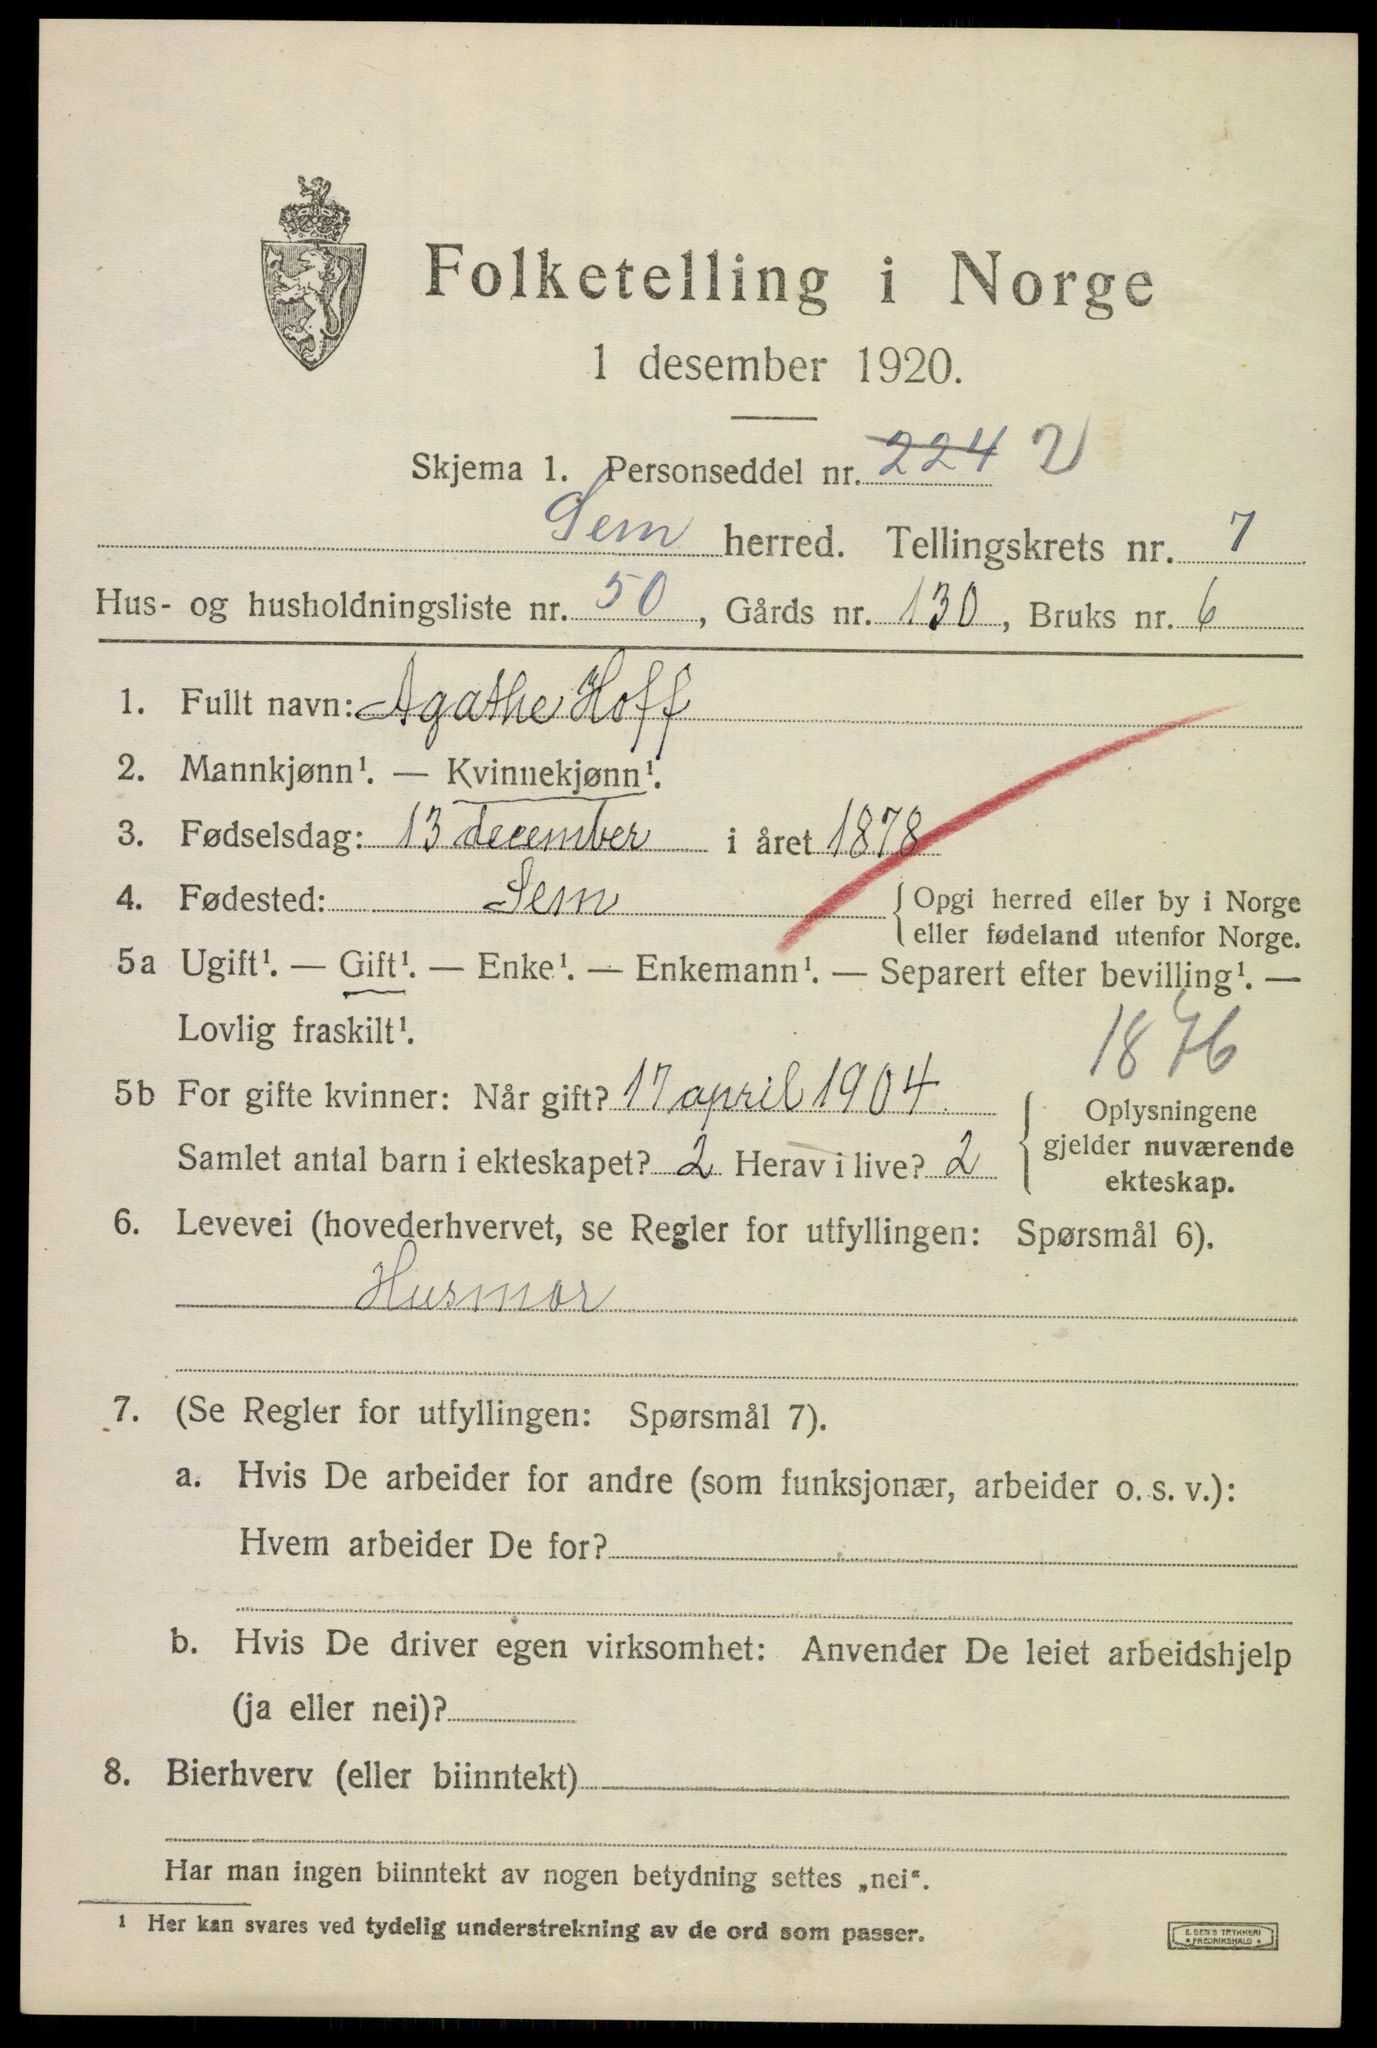 Folketelling i Norge
1 desember 1920.
Skjema 1. Personseddel nr. 224 2
Sem herred. Tellingskrets nr. 7
Hus- og husholdningsliste nr. 50, Gårds nr. 130, Bruks nr. 6
1. Fullt navn: Agathe Hoff
2. Mannkjønn¹. — Kvinnekjønn¹.
3. Fødselsdag: 13 december i året 1878
4. Fødested: Sem { Opgi herred eller by i Norge
eller fødeland utenfor Norge.
5a Ugift¹. — Gift¹. — Enke¹. — Enkemann¹. — Separert efter bevilling¹. —
Lovlig fraskilt¹.
5b For gifte kvinner: Når gift? 17 april 1904.
Samlet antal barn i ekteskapet? 2 Herav i live? 2
{ Oplysningene
gjelder nuværende
ekteskap.
6. Levevei (hovederhvervet, se Regler for utfyllingen: Spørsmål 6).
Husmor
7. (Se Regler for utfyllingen: Spørsmål 7).
a. Hvis De arbeider for andre (som funksjonær, arbeider o. s. v.):
Hvem arbeider De for?
b. Hvis De driver egen virksomhet: Anvender De leiet arbeidshjelp
(ja eller nei)?
8. Bierhverv (eller biinntekt)
Har man ingen biinntekt av nogen betydning settes „nei“.
1 Her kan svares ved tydelig understrekning av de ord som passer.
E. SEM'S TRYKKERI
FREDRIKSHALD